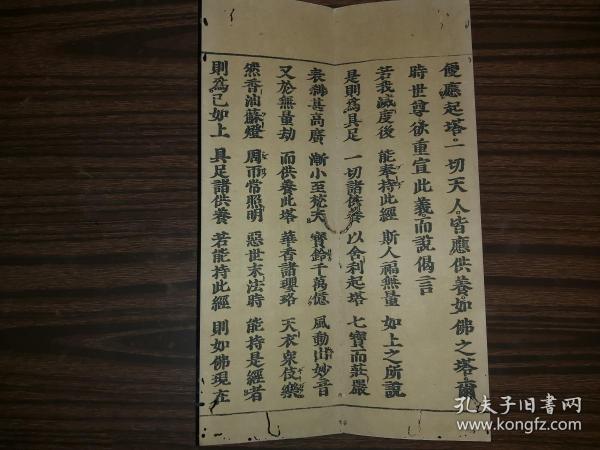 便應起塔。一切天人。皆應供養。如佛之塔爾
時世尊欲重宣此義。而說偈言
若我滅度後 能奉持此經 斯人福無量 如上之所說
是則為具足 一切諸供養 以舍利起塔 七寶而莊嚴
表剎甚高廣 漸小至梵天 寶鈴千萬億 風動出妙音
又於無量劫 而供養此塔 華香諸瓔珞 天衣眾伎樂
然香油蘇燈 周帀常照明 惡世末法時 能持是經者
則為已如上 具足諸供養 若能持此經 則如佛現在
孔夫子旧书网
www.kongfz.com